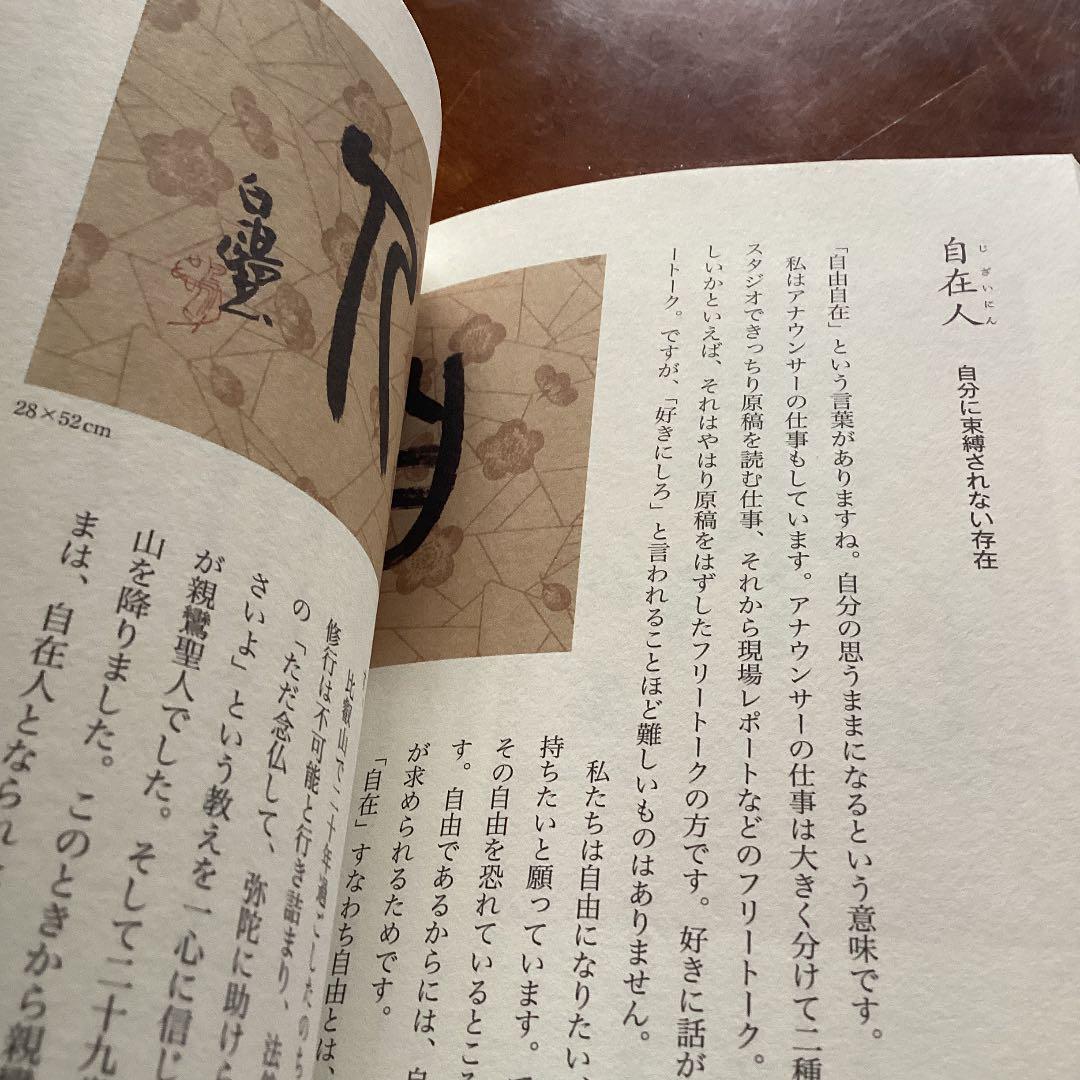 自在人
じざいにん
自分に束縛されない存在
「自由自在」という言葉がありますね。自分の思うままになるという意味です。
私はアナウンサーの仕事もしています。アナウンサーの仕事は大きく分けて二種
スタジオできっちり原稿を読む仕事、それから現場レポートなどのフリートーク。
しいかといえば、それはやはり原稿をはずしたフリートークの方です。好きに話が
ートーク。ですが、「好きにしろ」と言われることほど難しいものはありません。
私たちは自由になりたい、
持ちたいと願っています。
その自由を恐れているところ
す。自由であるからには、
が求められるためです。
「自在」すなわち自由とは、
28×52cm
比叡山で二十年過ごしたのち
修行は不可能と行き詰まり、法
の「ただ念仏して、弥陀に助けら
さいよ」という教えを一心に信じ
が親鸞聖人でした。そして二十九
山を降りました。このときから親
まは、自在人となられ